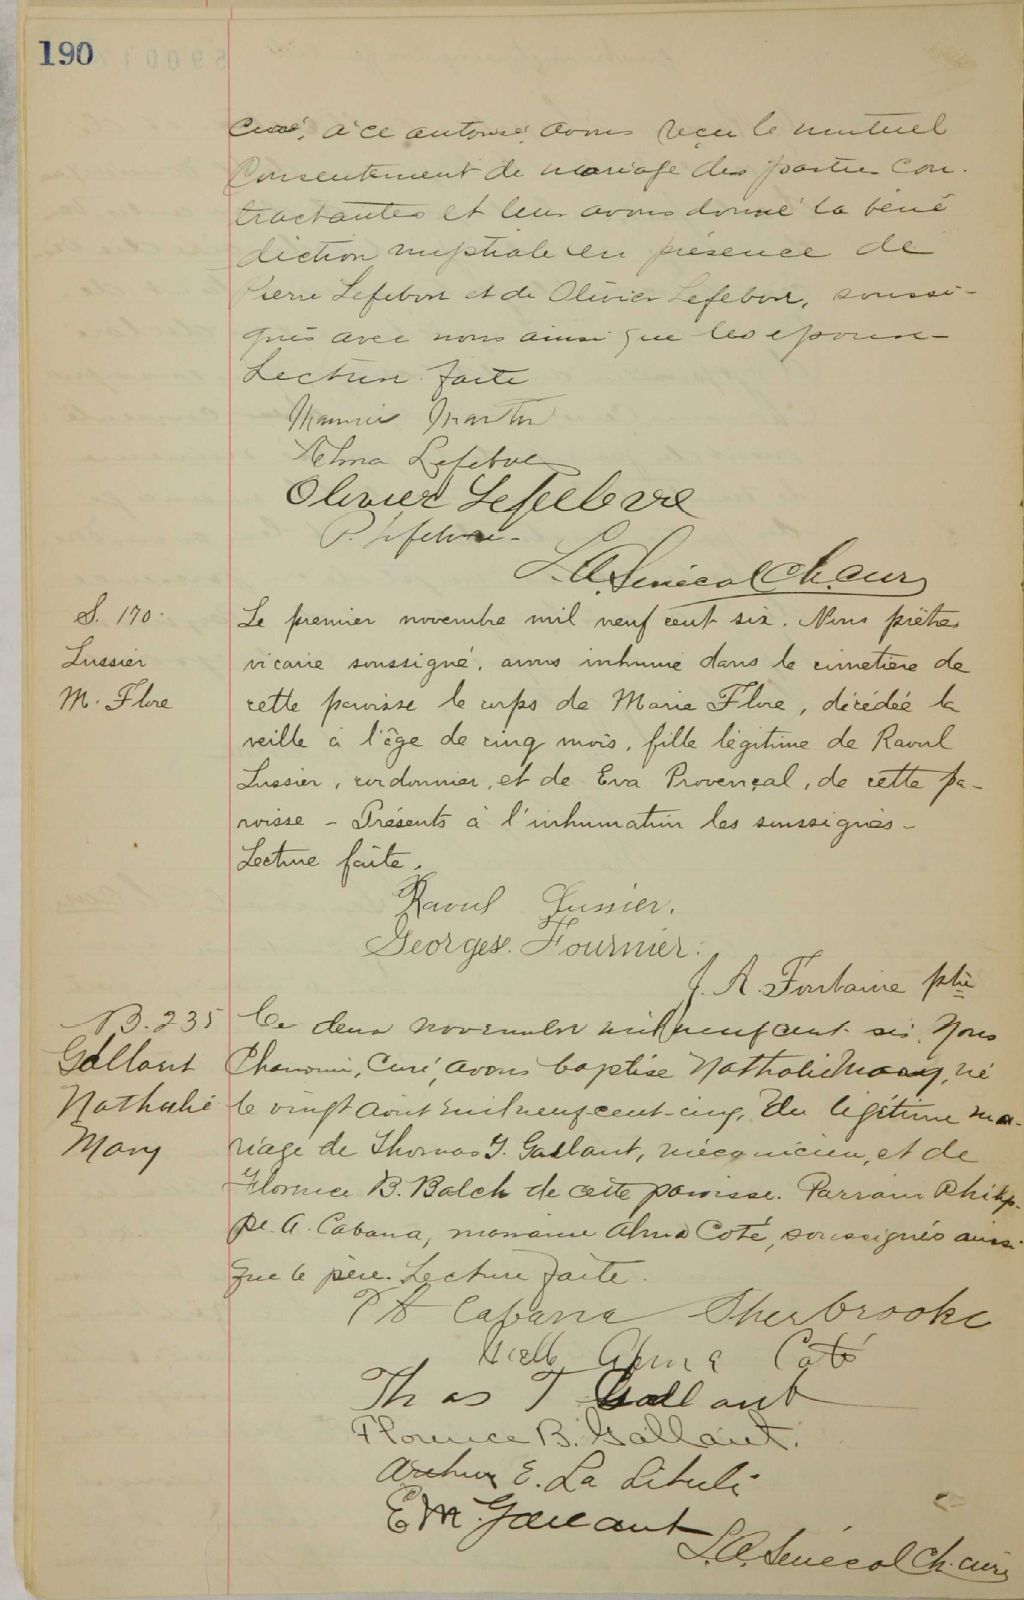 190
curé, à ce autorisé, avons reçu le mutuel
Consentement de mariage des parties con-
tractantes et leur avons donné la béné
diction nuptiale en présence de
Pierre Lefebvre et de Olivier Lefebvre, soussi-
gnés avec nous ainsi que les epoux-
Lecture faite
Martin
Alma Lefebvre
Olivier Lefebvre
P. Lefebvre-
L.A. Senécal Ch. curé
S. 170.
Lussier
M. Flore
Le premier novembre mil neuf cent six. Nous prêtre
vicaire soussigné, avons inhumé dans le cimetière de
cette paroisse le corps de Marie Flore, décédée la
veille à l'âge de cinq mois, fille légitime de Raoul
Lussier, cordonnier, et de Eva Provençal, de cette pa-
roisse - Présents à l'inhumation les soussignés -
Lecture faite.
Raoul Lussier.
Georges. Fournier.
J. A. Fontaine ptre
B. 235
Gallant
Nathalie
Mary
Ce deux novembre mil neuf cent six. Nous
Chanoine, Curé, avons baptisé Nathalie Mary, né
le vingt août mil neuf cent-cinq, du légitime ma-
riage de Thomas T. Gallant, mécanicien, et de
Florence B. Balch de cette paroisse. Parrain Philip-
pe. A. Cabana, marraine Alma Coté, soussignés ainsi
que le père. Lecture faite.
P A Cabana Sherbrooke
Melle Alma Coté
Thos T Gallant
Florence B. Gallant.
Arthur E. La
E M. Gallant
L.A. Senécal Ch. curé